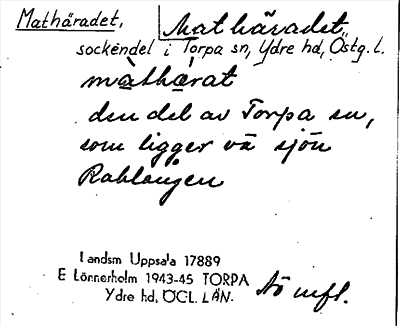 Mathäradet,
Mathäradet,
sockendel i Torpa sn, Ydre hd, Östg. l.
màthærat
den del av Torpa sn,
som ligger vä sjön
Rablången
Landsm Uppsala 17889
E Lönnerholm 1943-45 TORPA
Ydre hd, ÖGL. LÄN.
mfl.